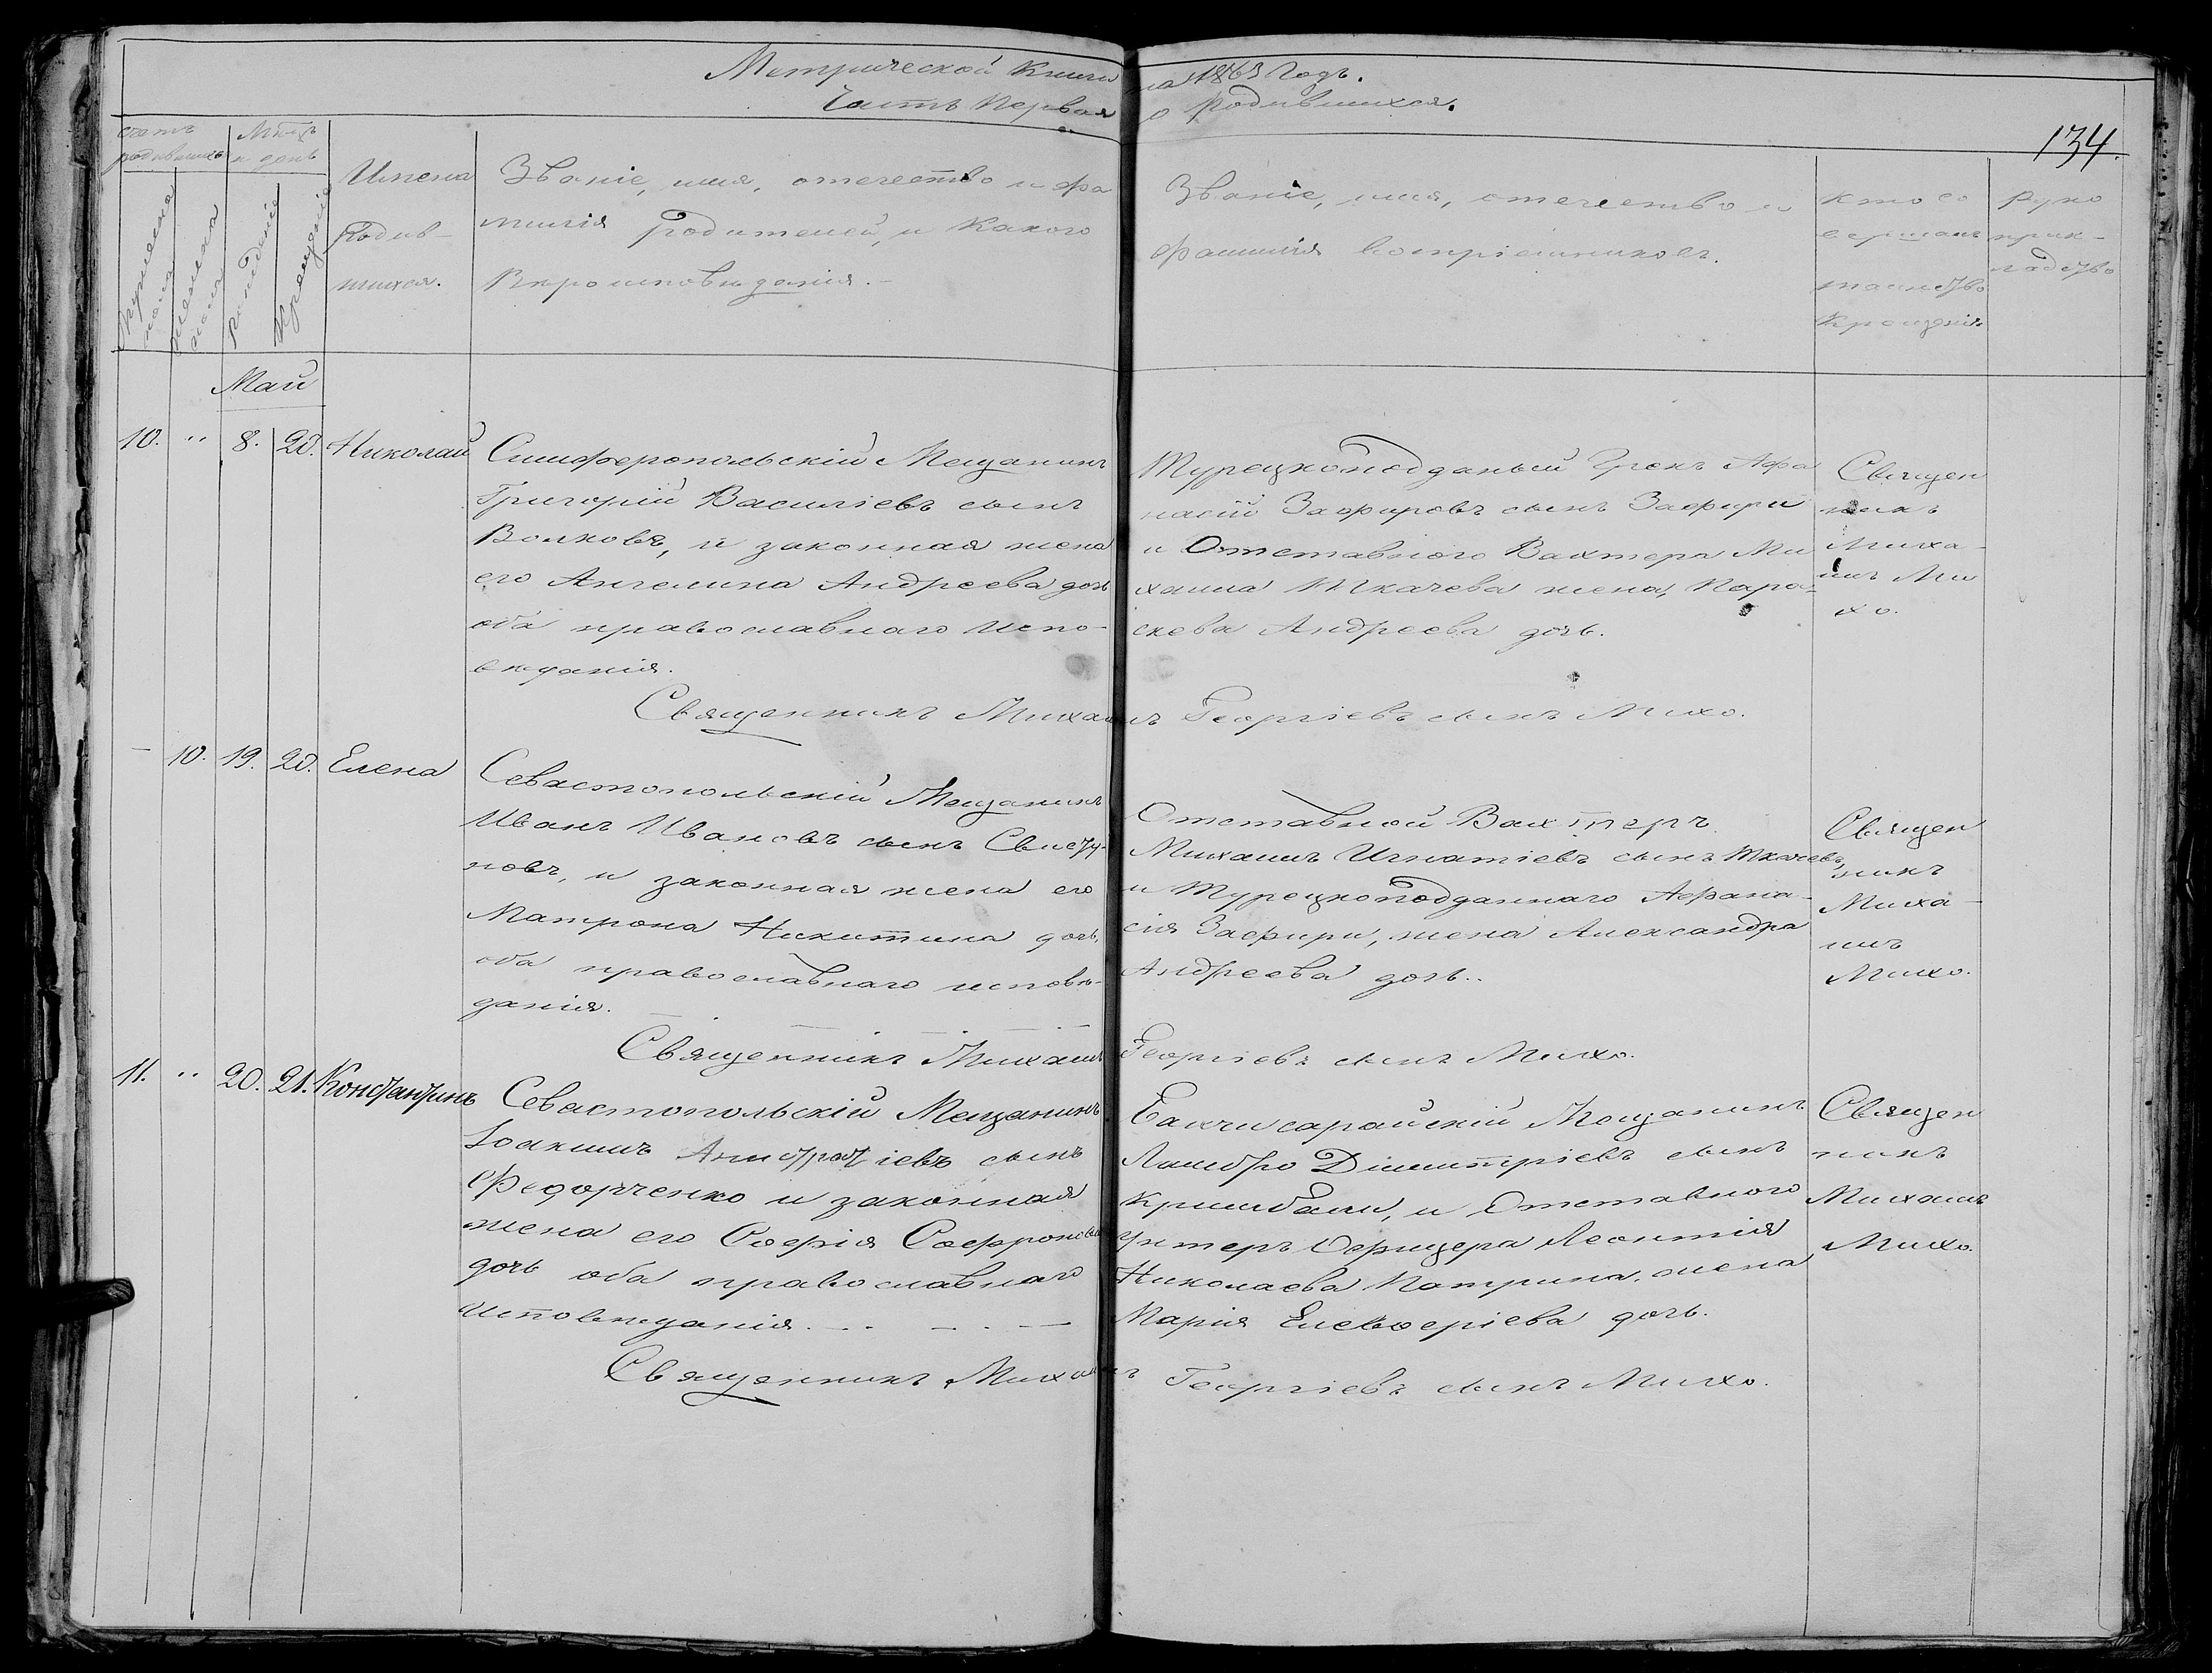 Метрической Книги на 1863 Годъ.
Часть Первая о Родившихся.
134.
счетъ родившихся
Мужеска пола
женска пола
Мѣсяцъ и день
Рожденія
Крещенія
Имена
Родив-
шихся.
Званіе, имя, отечество и фа
милія родителей, и Какого
Вѣроисповѣданія.-
Званіе, имя, отечество и
фамилія воспріемниковъ.
Кто со
вершалъ
таинство
Крещенія
Руко
прик-
ладство
Май
10. " 8. 20. Николай
Симферопольскій Мещанинъ
Григорій Василіевъ сынъ
Волковъ, и законная жена
его Ангелина Андреева дочь
оба православнаго испо-
вѣданія.
Турецкоподданый Грекъ Афа
насій Зафировъ сынъ Зафири
и Отставного Вахтера Ми
хаила Ткачева жена, Пара-
скева Андреева дочь.
Священ
никъ
Миха-
илъ Ми
хо.
Священникъ Михаилъ Георгіевъ сынъ Михо.
- 10. 19. 20. Елена
Севастопольскій Мещанинъ
Иванъ Ивановъ сынъ Свисту-
новъ, и законная жена его
Матрона Никитина дочь,
оба православнаго исповѣ-
данія.
Отставной Вахтеръ
Михаилъ Игнатіевъ сынъ Ткачевъ,
и Турецкоподданнаго Афана-
сія Зафири, жена Александра
Андреева дочь..
Священ
никъ
Миха-
илъ
Михо.
Священникъ Михаилъ Георгіевъ сынъ Михо.
11. " 20. 21. Константинъ
Севастопольскій Мещанинъ
Іоакимъ Калистратіевъ сынъ
Федорченко и законная
жена его Софія Софронова
дочь оба православнаго
исповѣданія.
Бахчисарайскій Мещанинъ
Ламбро Дмитріевъ сынъ
и Отставного
Унтеръ Офицера Леонтія
Николаева Патрина, жена
Марія Елевферіева дочь.
Священ
никъ
Михаилъ
Михо.
Священникъ Михаилъ Георгіевъ сынъ Михо.